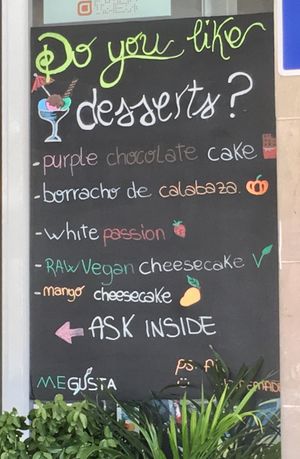 Do you like
desserts?
- purple chocolate cake
- borracho de calabaza.
- white passion
- RAW Vegan cheesecake V
- mango cheesecake
ASK INSIDE
MEGUSTA